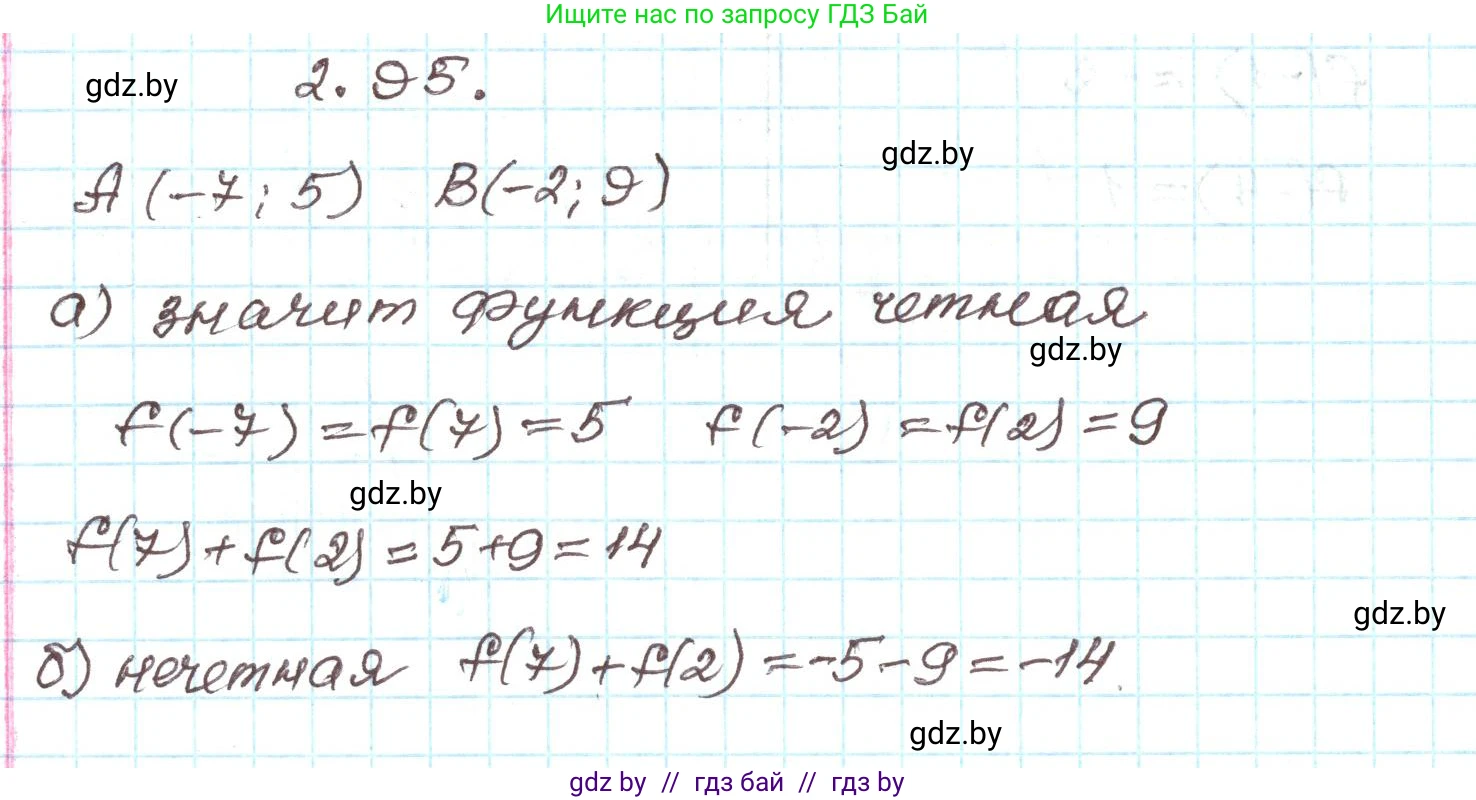 Ищите нас по запросу ГДЗ Бай
gdz.by 2.95.
gdz.by
A (-7; 5) B(-2; 9)
а) значит функция четная
gdz.by
f(-7) = f(7) = 5 f(-2) = f(2) = 9
gdz.by
f(7) + f(2) = 5+9 = 14
gdz.by
б) нечетная f(7) + f(2) = -5 - 9 = -14
gdz.by
gdz by // гдз бай // гдз by